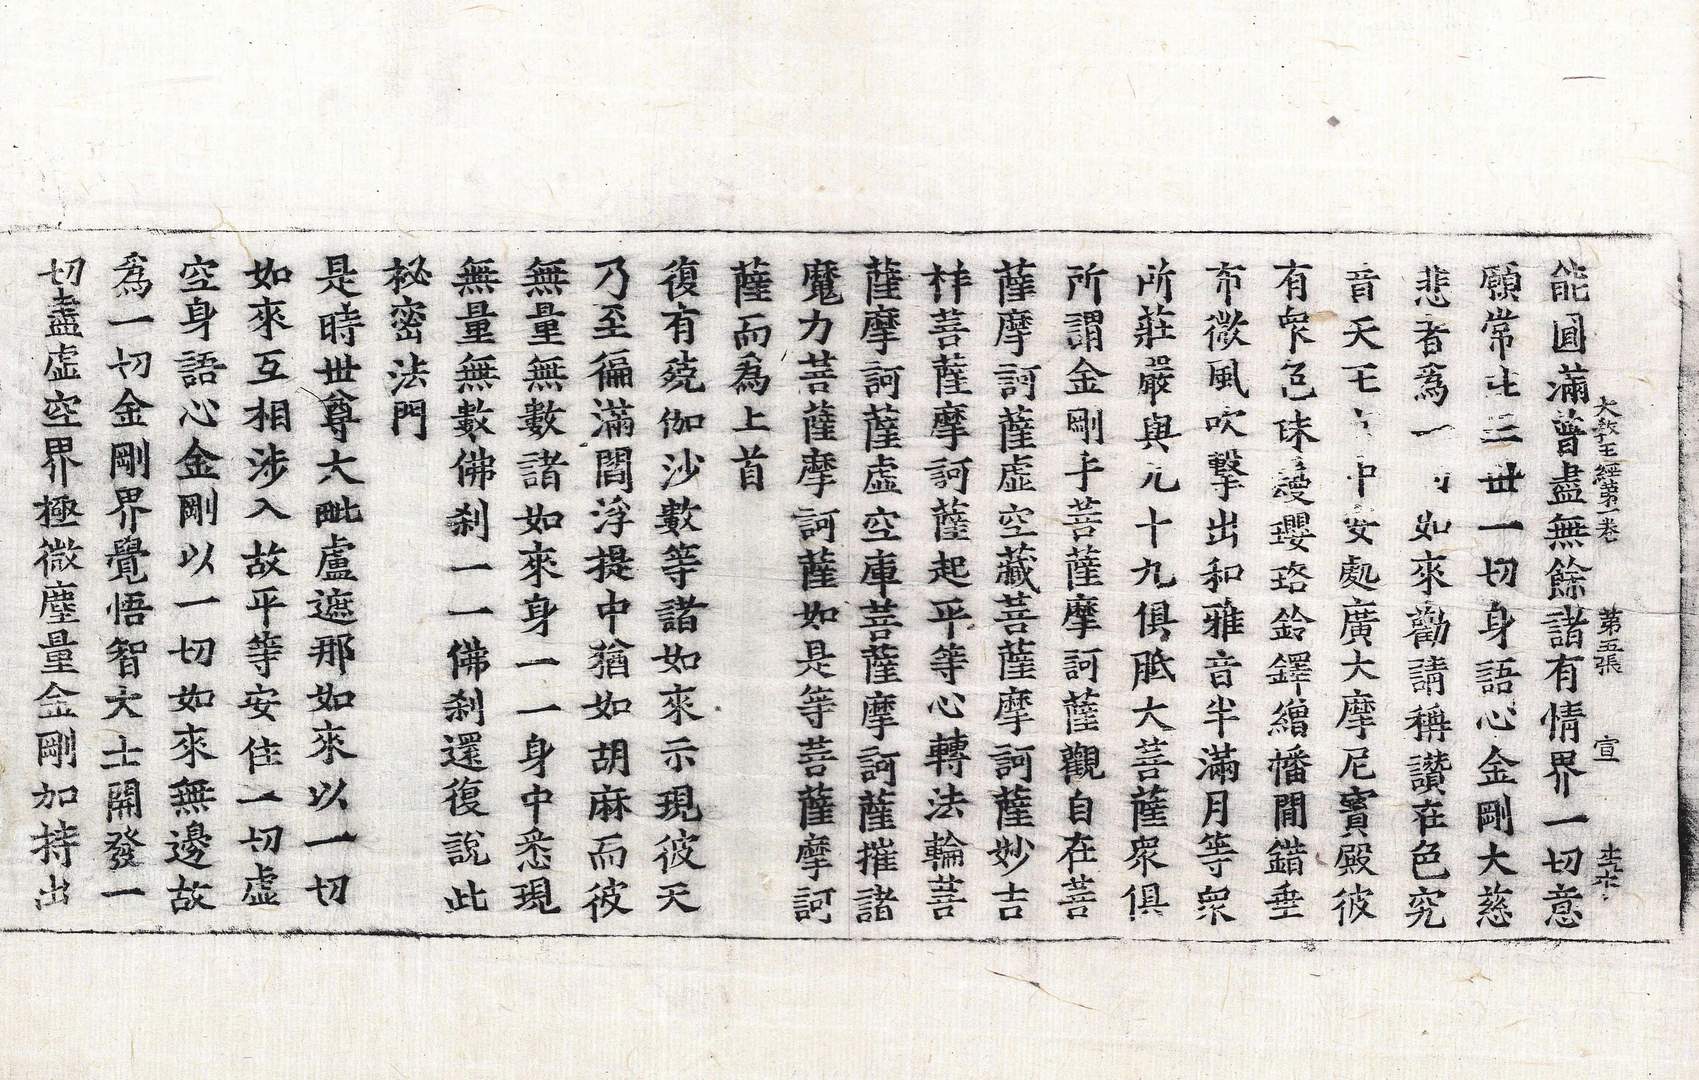 大教王經第一卷 第五張 宣
能圓滿普盡無餘諸有情界一切意
願常住三世一切身語心金剛大慈
悲者爲一 如來勸請稱讚在色究
音天王 中 安處廣大摩尼寶殿彼
有衆色殊 瓔珞鈴鐸繒幡間錯垂
布微風吹擊出和雅音半滿月等衆
所莊嚴與九十九俱胝大菩薩衆俱
所謂金剛手菩薩摩訶薩觀自在菩
薩摩訶薩虛空藏菩薩摩訶薩妙吉
祥菩薩摩訶薩起平等心轉法輪菩
薩摩訶薩虛空庫菩薩摩訶薩摧諸
魔力菩薩摩訶薩如是等菩薩摩訶
薩而爲上首
復有殑伽沙數等諸如來示現彼天
乃至徧滿閻浮提中猶如胡麻而彼
無量無數諸如來身一一身中悉現
無量無數佛刹一一佛刹還復說此
祕密法門
是時世尊大毗盧遮那如來以一切
如來互相涉入故平等安住一切虛
空身語心金剛以一切如來無邊故
爲一切金剛界覺悟智大士開發一
切盡虛空界極微塵量金剛加持出